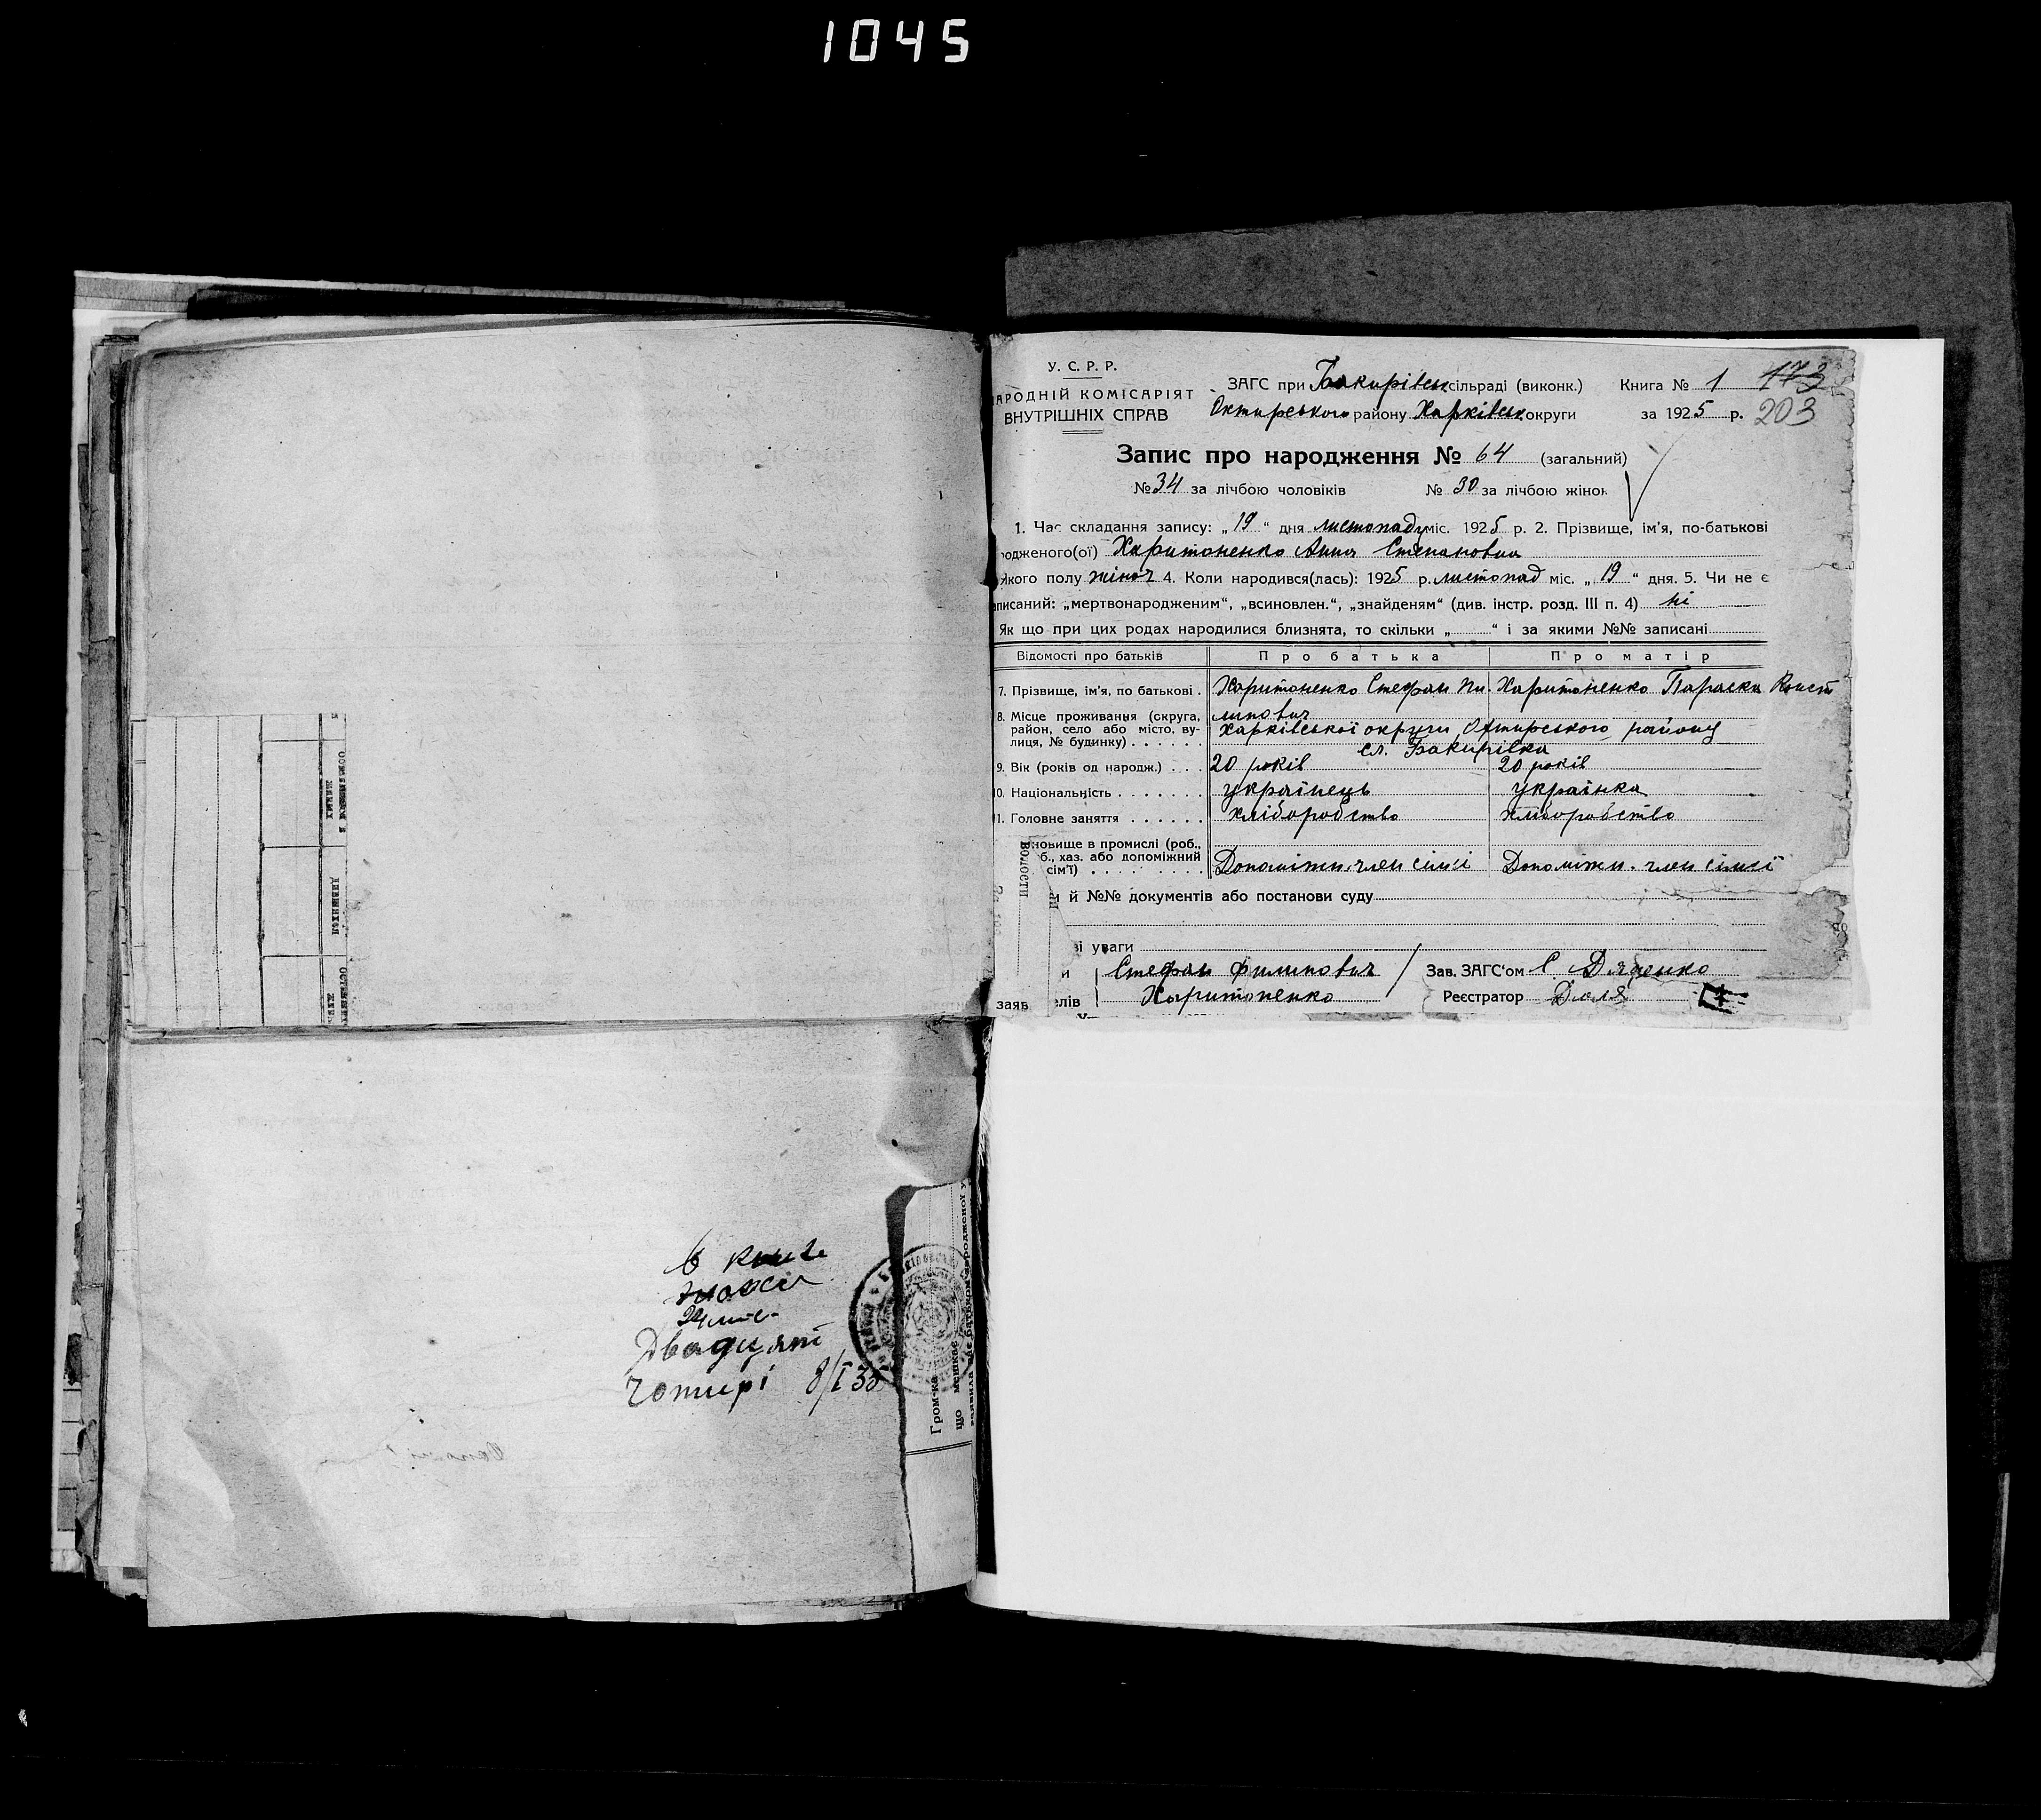 1045
У. С. Р. Р.
АРОДНІЙ КОМІСАРІЯТ
ВНУТРІШНІХ СПРАВ
ЗАГС при Бакирівськ сільраді (виконк.) Книга № 1 173
Охтирського району Харківськ округи за 1925 р. 203
Запис про народження № 64 (загальний)
№ 34 за лічбою чоловіків № 30 за лічбою жінок
1. Час складання запису: „19“ дня листопаду міс. 1925 р. 2. Прізвище, ім’я, по-батькові
родженого(ої) Харитоненко Анна Степановна
Якого полу жіноч 4. Коли народився(лась): 1925 р. листопад міс. „19“ дня. 5. Чи не є
аписаний: „мертвонародженим“, „всиновлен.“, „знайденям“ (див. інстр. розд. III п. 4) ні
Як що при цих родах народилися близнята, то скільки „ “ і за якими №№ записані
Відомості про батьків Про батька Про матір
7. Прізвище, ім’я, по батькові . Харитоненко Стефан Пи. Харитоненко Параска Конст
липович
8. Місце проживання (округа, район, село або місто, ву-
лиця, № будинку) Харківської округи Охтирського району
сл. Бакирівка
9. Вік (років од народж.) . . . 20 років 20 років
10. Національність . . . . . . . українець українка
11. Головне заняття . . . . . . хліборобство хліборобство
новище в промислі (роб.,
б., хаз. або допоміжний
сім’ї) . . . . . . . . . Допоміжн. член сімьі Допоміжн. член сімьї
й №№ документів або постанови суду
ві уваги
и Стефан Филипович Зав. ЗАГС‘ом С Дяченко
заяв елів Харитоненко Реєстратор
волости
В книзі
24
Двадцять
чотирі 8/I 35
Гром-ка
що мешкає